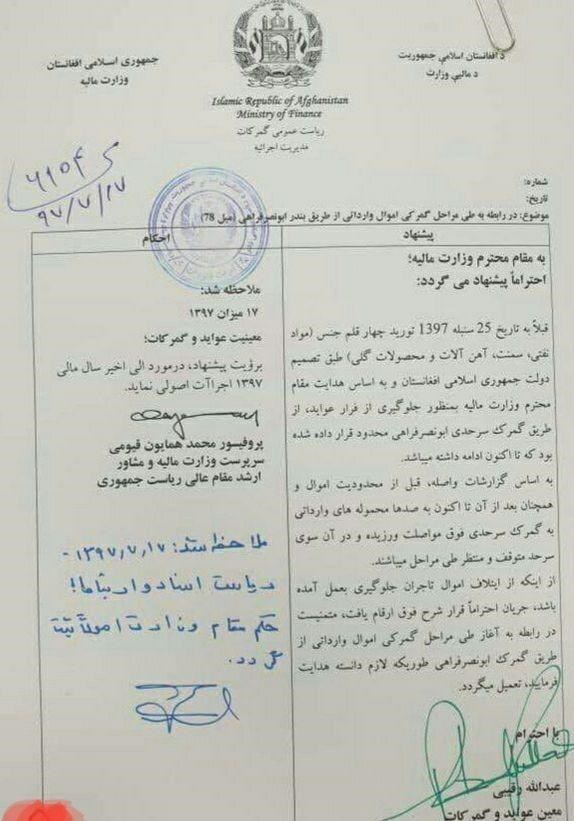 د افغانستان اسلامي جمهوریت
د مالیې وزارت
جمهوری اسلامی افغانستان
وزارت مالیه
Islamic Republic of Afghanistan
Ministry of Finance
ریاست عمومی گمرکات
مدیریت اجرائیه
۶۱۵۴
۹۷/۷/۱۷
شماره:
تاریخ:
موضوع: در رابطه به طی مراحل گمرکی اموال وارداتی از طریق بندر ابونصرفراهی (میل 78)
پیشنهاد
به مقام محترم وزارت مالیه؛
احتراماً پیشنهاد می گردد:
قبلاً به تاریخ 25 سنبله 1397 تورید چهار قلم جنس (مواد
نفتی، سمنت، آهن آلات و محصولات گلی) طبق تصمیم
دولت جمهوری اسلامی افغانستان و به اساس هدایت مقام
محترم وزارت مالیه بمنظور جلوگیری از فرار عواید، از
طریق گمرک سرحدی ابونصرفراهی محدود قرار داده شده
بود که تا اکنون ادامه داشته میباشد.
به اساس گزارشات واصله، قبل از محدودیت اموال و
همچنان بعد از آن تا اکنون به صدها محموله های وارداتی
به گمرک سرحدی فوق مواصلت ورزیده و در آن سوی
سرحد متوقف و منتظر طی مراحل میباشند.
از اینکه از ایتلاف اموال تاجران جلوگیری بعمل آمده
باشد، جریان احتراماً قرار شرح فوق ارقام یافت، متمنیست
در رابطه به آغاز طی مراحل گمرکی اموال وارداتی از
طریق گمرک ابونصرفراهی طوریکه لازم دانسته هدایت
فرمایید، تعمیل میگردد.
با احترام
عبدالله رقیبی
معین عواید و گمرکات
احکام
ملاحظه شد:
۱۷ میزان ۱۳۹۷
معینیت عواید و گمرکات؛
برؤیت پیشنهاد، درمورد الی اخیر سال مالی
۱۳۹۷ اجراآت اصولی نماید.
پروفیسور محمد همایون قیومی
سرپرست وزارت مالیه و مشاور
ارشد مقام عالی ریاست جمهوری
ملاحظه شد: ۱۳۹۷٫۷٫۱۷-
ریاست اسناد و ارتباط!
حکم مقام وزارت اصولاً ثبت
گردد.